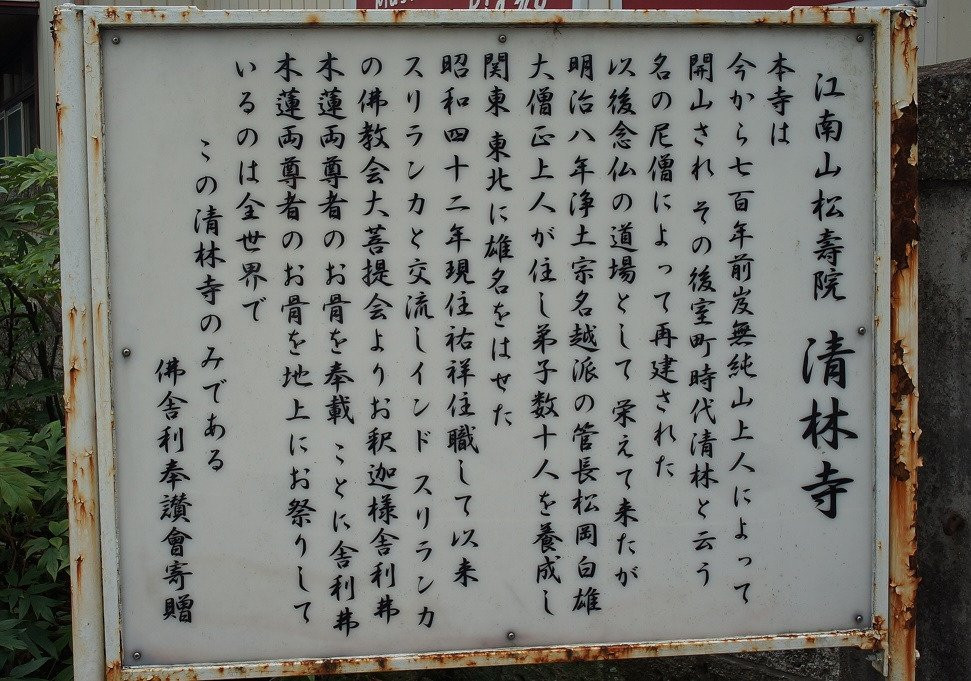 江南山松壽院 清林寺
本寺は
今から七百年前岌無純山上人によって
開山され その後室町時代清林と云う
名の尼僧によって再建された
以後念仏の道場として栄えて来たが
明治八年浄土宗名越派の管長松岡白雄
大僧正上人が住し弟子数十人を養成し
関東 東北に雄名をはせた
昭和四十二年現住祐祥住職して以来
スリランカと交流しインド スリランカ
の佛教会大菩提会よりお釈迦様舎利弗
木蓮両尊者のお骨を奉載 ことに舎利弗
木蓮両尊者のお骨を地上にお祭りして
いるのは全世界で
この清林寺のみである
佛舎利奉讃會寄贈